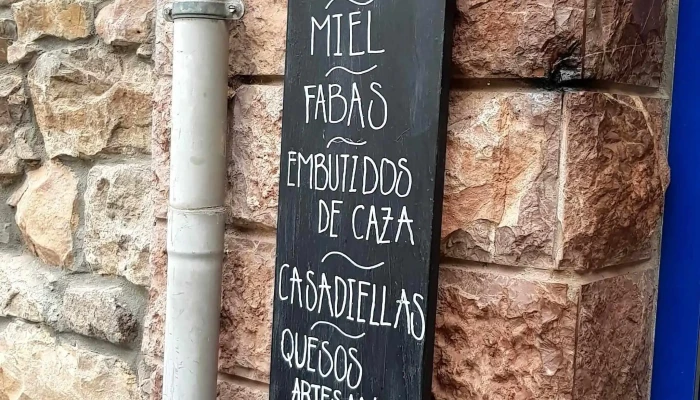 MIEL
FABAS
EMBUTIDOS
DE CAZA
CASADIELLAS
QUESOS